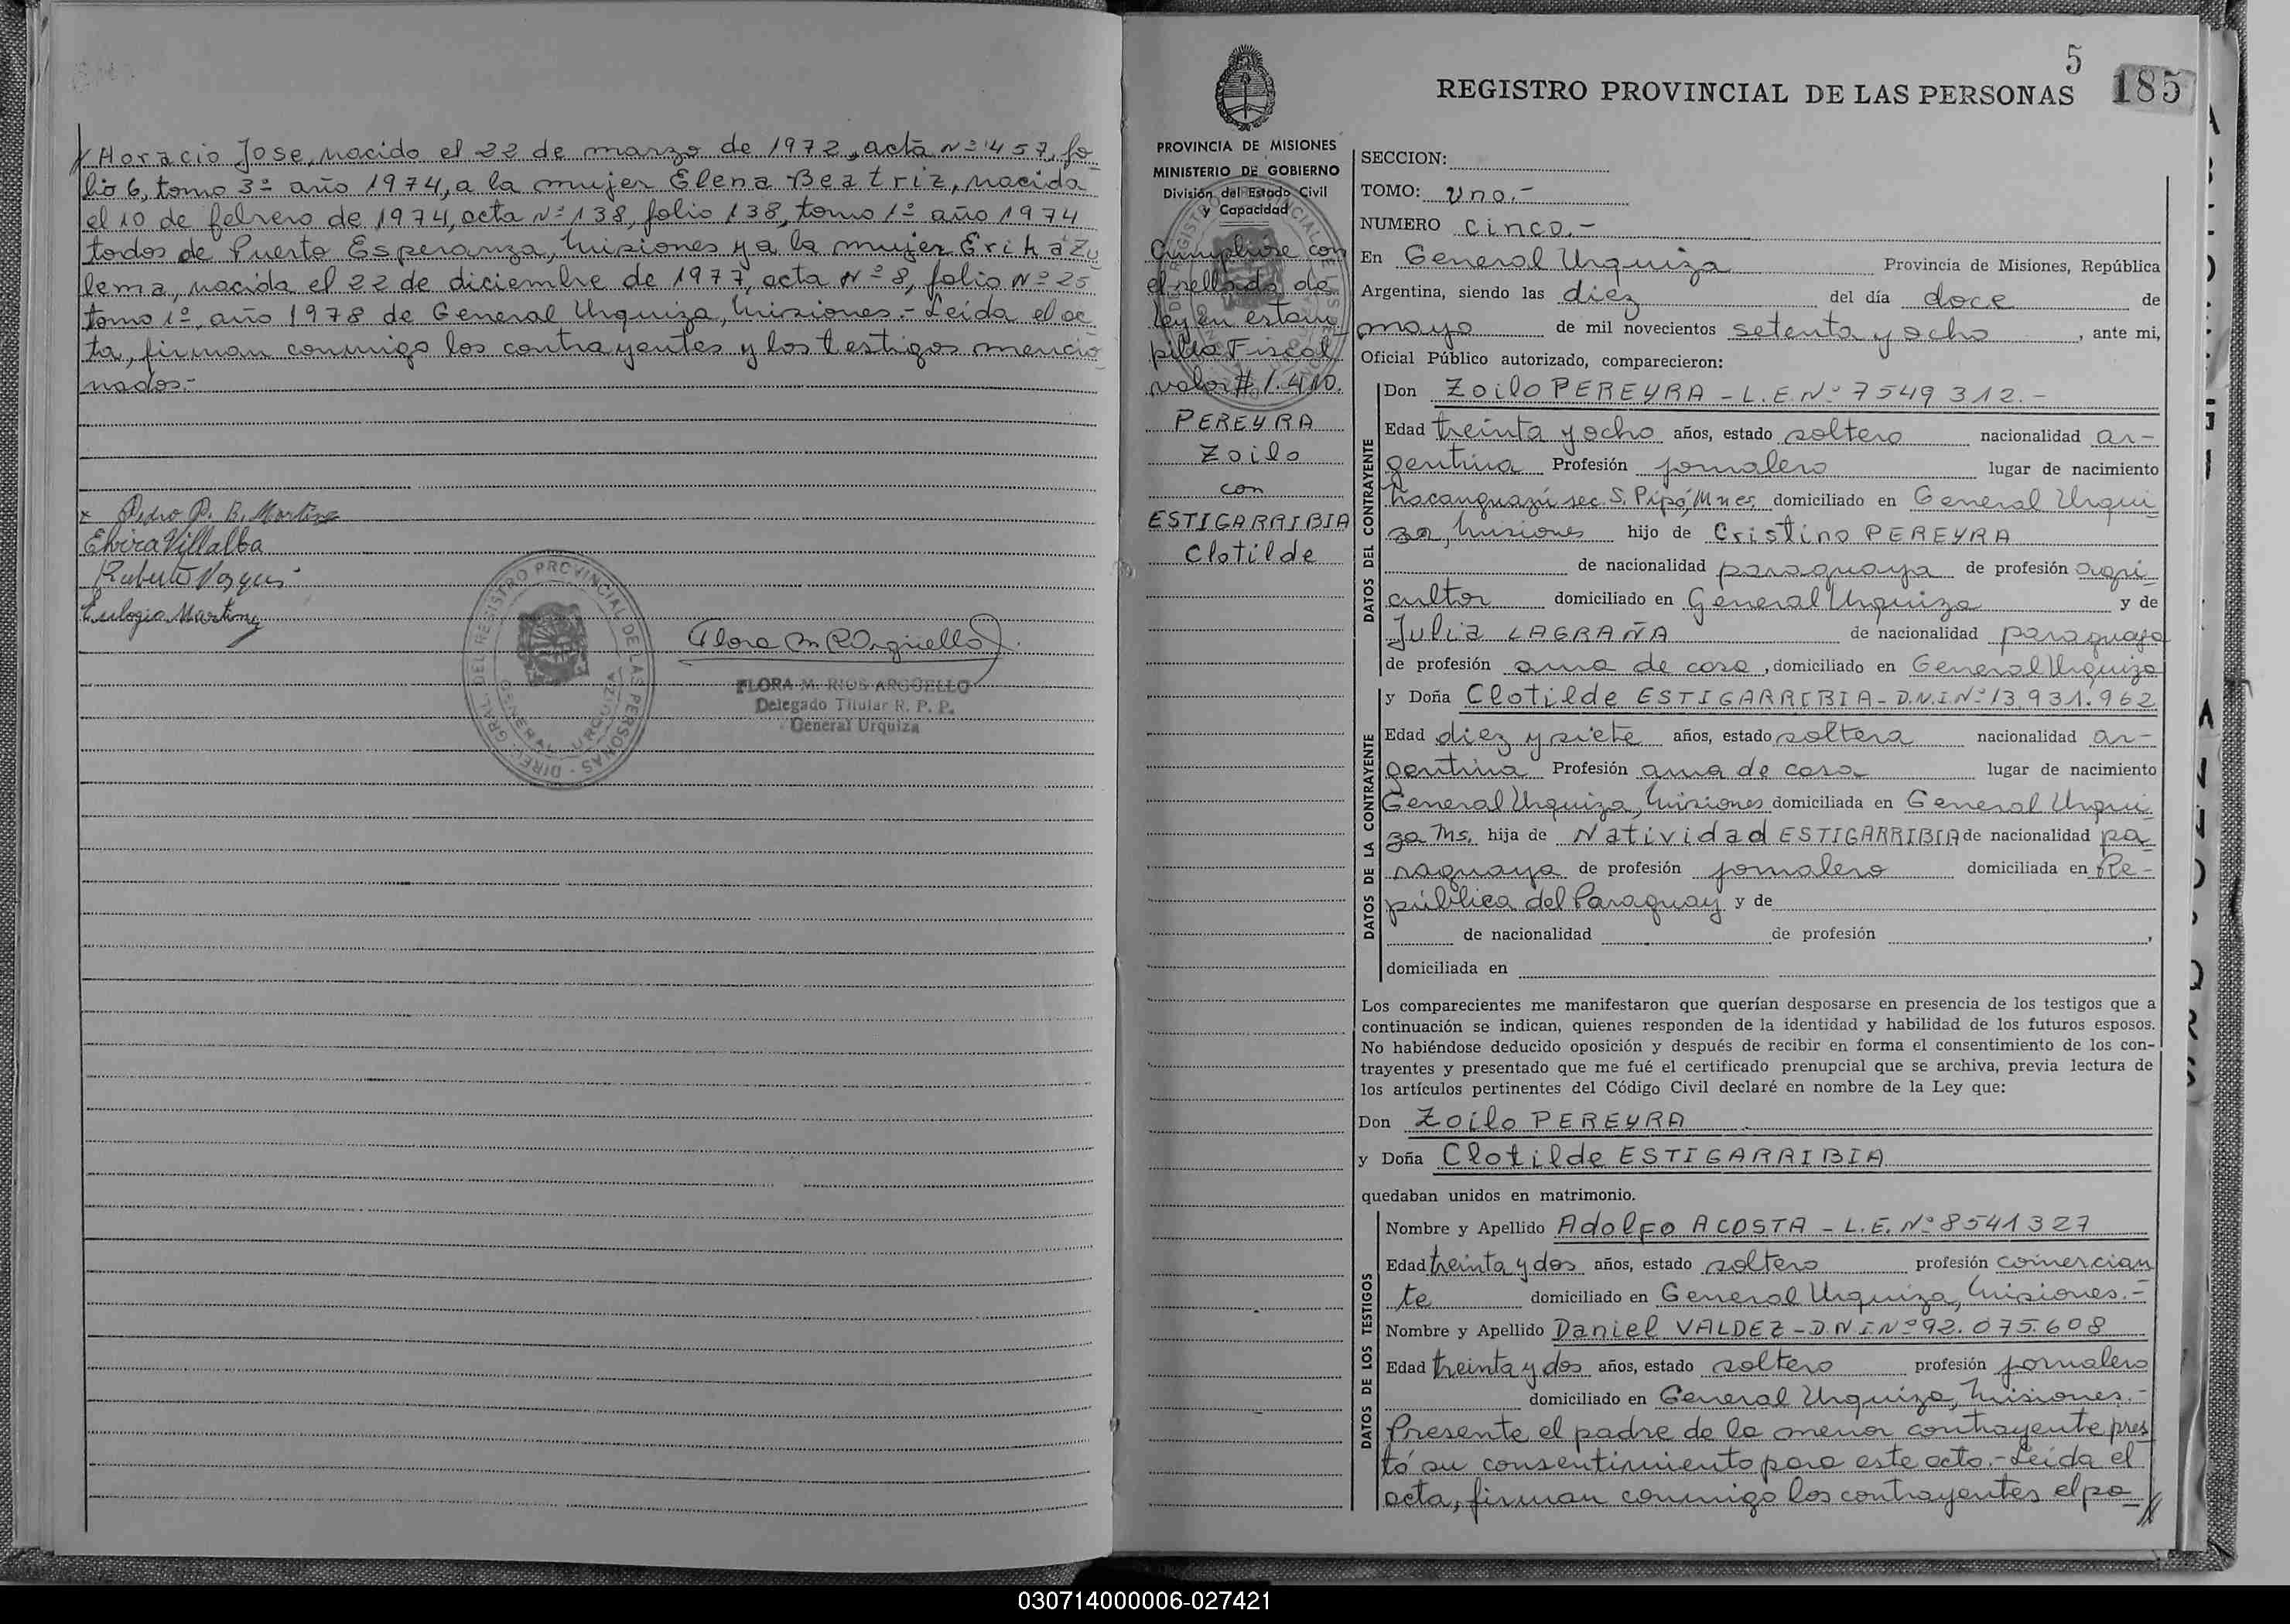 // Horacio Jose, nacido el 22 de marzo de 1972, acta Nº 457, fo
lio 6, tomo 3º año 1974, a la mujer Elena Beatriz, nacida
el 10 de febrero de 1974, acta Nº 138, folio 138, tomo 1º año 1974
todos de Puerto Esperanza, Misiones y a la mujer Erika Zu
lema, nacida el 22 de diciembre de 1977, acta Nº 8, folio Nº 25
tomo 1º, año 1978 de General Urquiza, Misiones.- Leída el ac
ta, firman conmigo los contrayentes y los testigos mencio
nados.-
x Pedro P. B. Martinez
Elvira Villalba
Ruberto Vasques
Eulogio Martinez
DIREC. GRAL. DEL REGISTRO PROVINCIAL DE LAS PERSONAS
GENERAL URQUIZA
Flora M. R. Argüello
FLORA M. RIOS ARGÜELLO
Delegado Titular R. P. P.
General Urquiza
5
185
REGISTRO PROVINCIAL DE LAS PERSONAS
PROVINCIA DE MISIONES
MINISTERIO DE GOBIERNO
División del Estado Civil
y Capacidad
Cumplióse con
el sellado de
ley en estam
pilla Fiscal
valor $ 1.410.
PEREYRA
Zoilo
con
ESTIGARRIBIA
Clotilde
SECCION:
TOMO: uno.-
NUMERO cinco.-
En General Urquiza Provincia de Misiones, República
Argentina, siendo las diez del día doce de
mayo de mil novecientos setenta y ocho, ante mi,
Oficial Público autorizado, comparecieron:
DATOS DEL CONTRAYENTE
Don Zoilo PEREYRA - L.E.Nº 7549312.-
Edad treinta y ocho años, estado soltero nacionalidad ar-
gentina Profesión jornalero lugar de nacimiento
Ñacanguazú sec. S. Pipó, Mnes, domiciliado en General Urqui
za, Misiones hijo de Cristino PEREYRA
de nacionalidad paraguaya de profesión agri
cultor domiciliado en General Urquiza y de
Julia LAGRAÑA de nacionalidad paraguaya
de profesión ama de casa, domiciliado en General Urquiza
DATOS DE LA CONTRAYENTE
y Doña Clotilde ESTIGARRIBIA - D.N.I.Nº 13.931.962
Edad diez y siete años, estado soltera nacionalidad ar-
gentina Profesión ama de casa lugar de nacimiento
General Urquiza, Misiones domiciliada en General Urqui
za Ms. hija de Natividad ESTIGARRIBIA de nacionalidad pa
raguaya de profesión jornalero domiciliada en Re-
pública del Paraguay y de
de nacionalidad de profesión ,
domiciliada en
Los comparecientes me manifestaron que querían desposarse en presencia de los testigos que a
continuación se indican, quienes responden de la identidad y habilidad de los futuros esposos.
No habiéndose deducido oposición y después de recibir en forma el consentimiento de los con-
trayentes y presentado que me fué el certificado prenupcial que se archiva, previa lectura de
los artículos pertinentes del Código Civil declaré en nombre de la Ley que:
Don Zoilo PEREYRA
y Doña Clotilde ESTIGARRIBIA
quedaban unidos en matrimonio.
DATOS DE LOS TESTIGOS
Nombre y Apellido Adolfo ACOSTA - L.E. Nº 8541327
Edad treinta y dos años, estado soltero profesión comercian
te domiciliado en General Urquiza, Misiones.-
Nombre y Apellido Daniel VALDEZ - D.N.I.Nº 92.075.608
Edad treinta y dos años, estado soltero profesión jornalero
domiciliado en General Urquiza, Misiones.-
Presente el padre de la menor contrayente pres
tó su consentimiento para este acto.- Leída el
acta, firman conmigo los contrayentes el pa //
030714000006-027421